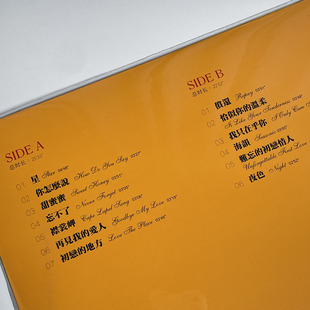 SIDE A
总时长
01 星 Star
02 你怎麼說 How Do You Say
03 甜蜜蜜 Sweet Honey
04 忘不了 Never Forget
05 襟裳岬 Cape Lapel Sang
06 再見我的愛人 Goodbye My Love
07 初戀的地方 Love The Place
SIDE B
总时长
01 償還 Repay
02 恰似你的溫柔
It Like Your Tenderness
03 我只在乎你 I Only Care
04 海韻 Seasons
05 難忘的初戀情人
Unforgettable First Love
06 夜色 Night